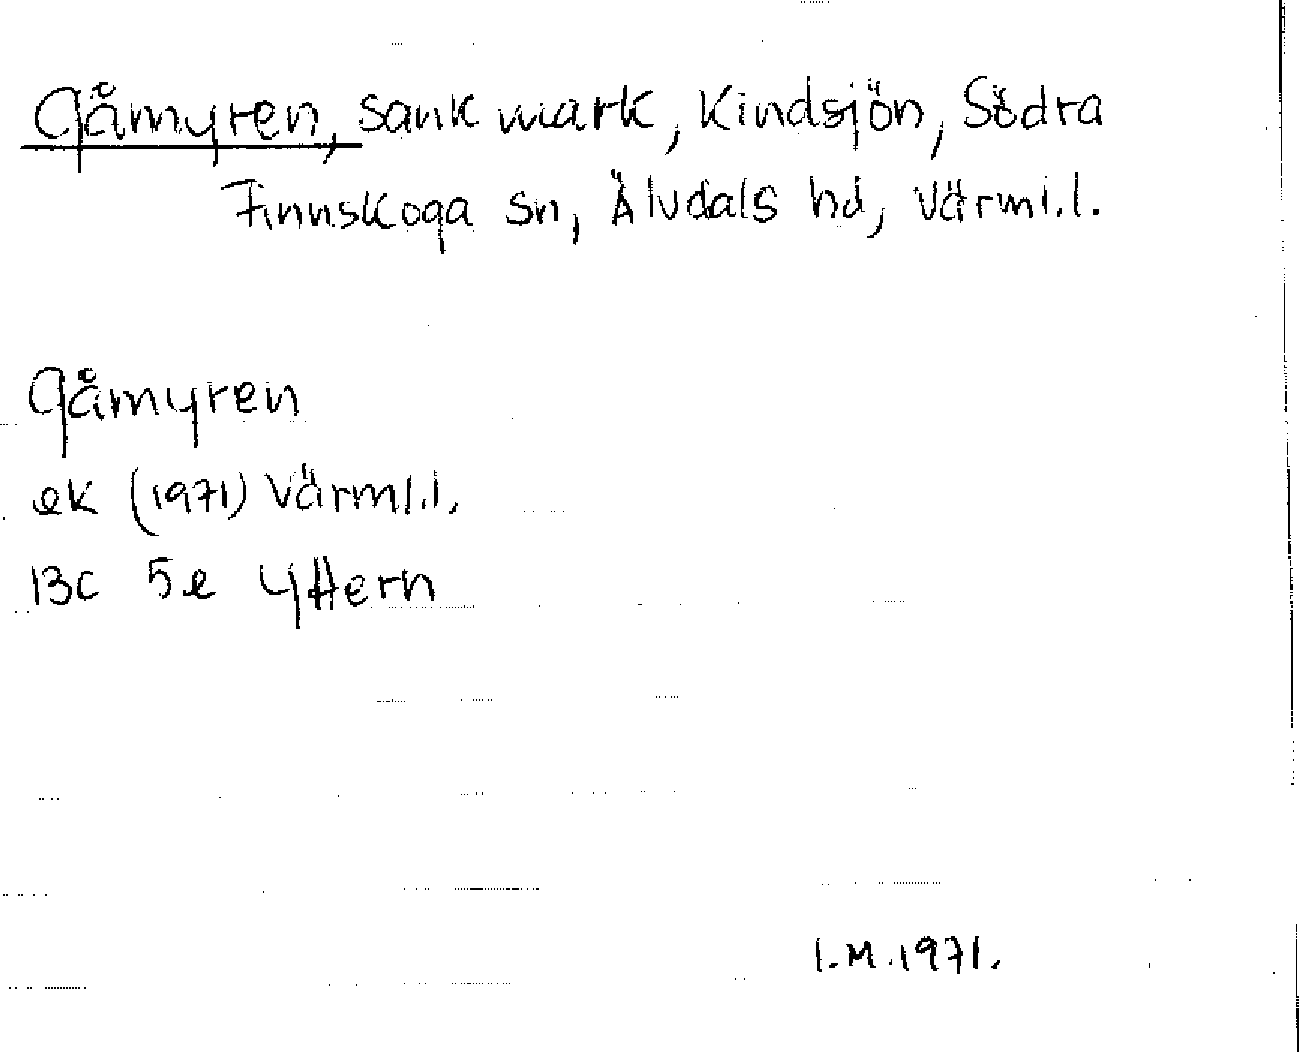 Gåmyren, sank mark, Kindsjön, Södra
Finnskoga sn, Älvdals hd, Värml.l.
Gåmyren
ek (1971) Värml.l.
13C 5e Yttern
I.M.1971.